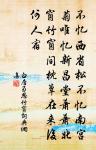 不忆西省松不忆南宫
菊惟忆新昌堂萧萧北
窗竹窗间枕簟在来后
何人宿
白居易思竹窗